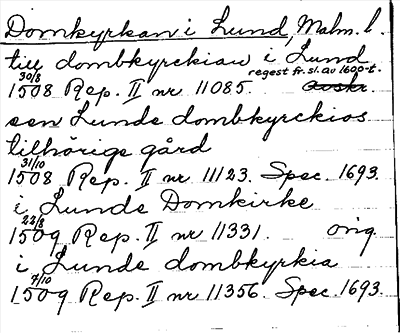 Domkyrkan i Lund, Malm. l.
till dombkyrckian i Lund
30/8 regest fr. sl. av 1600-t.
1508 Rep. II nr 11085. Avskr.
sen Lunde dombkyrckios
tilhörige gård
31/10
1508 Rep. II nr 11123. Spec. 1693.
i Lunde Domkirke
22/8
1509 Rep. II nr 11331. orig.
i Lunde dombkyrkia
7/10
1509 Rep. II nr 11356. Spec. 1693.